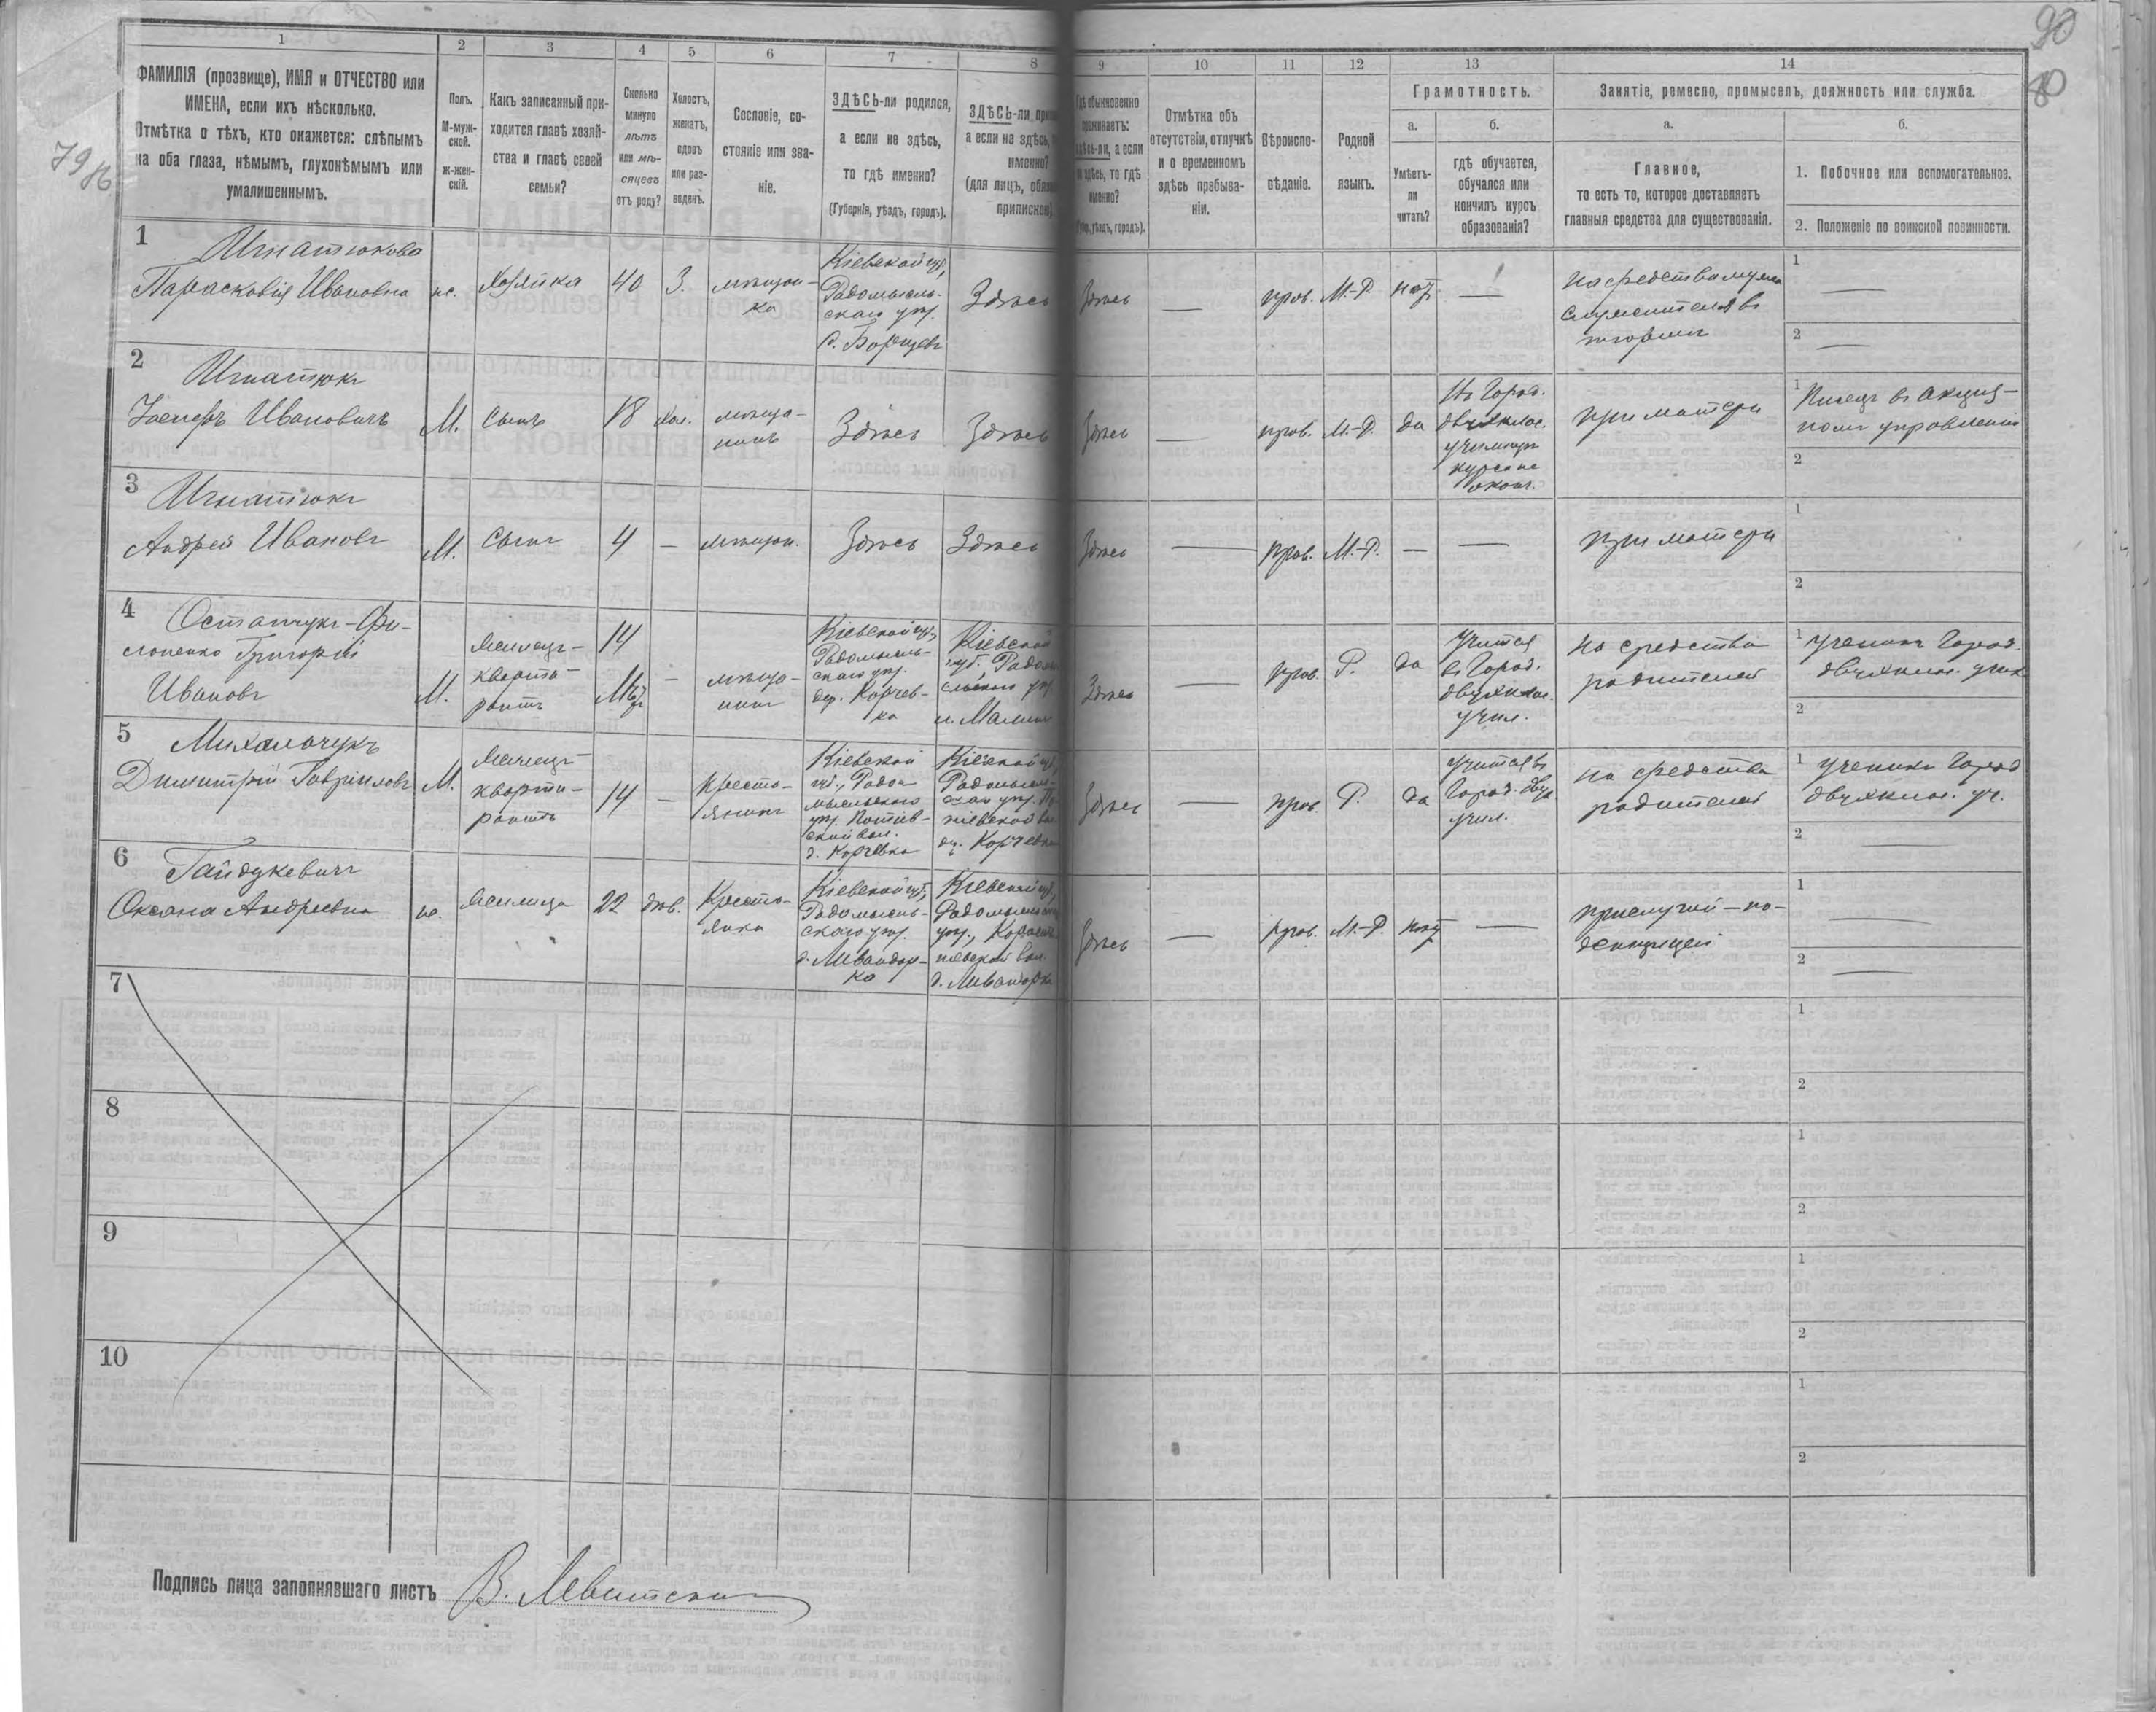 90
80
79
86
1
2
3
4
5
6
7
8
9
10
11
12
13
14
ФАМИЛІЯ (прозвище), ИМЯ и ОТЧЕСТВО или
ИМЕНА, если ихъ нѣсколько.
Отмѣтка о тѣхъ, кто окажется: слѣпымъ
на оба глаза, нѣмымъ, глухонѣмымъ или
умалишеннымъ.
Полъ.
М-муж-
ской.
Ж-жен-
скій.
Какъ записанный при-
ходится главѣ хозяй-
ства и главѣ своей
семьи?
Сколько
минуло
лѣтъ
или мѣ-
сяцевъ
отъ роду?
Холостъ,
женатъ,
вдовъ
или раз-
веденъ.
Сословіе, со-
стояніе или зва-
ніе.
ЗДѢСЬ-ли родился,
а если не здѣсь,
то гдѣ именно?
(Губернія, уѣздъ, городъ).
ЗДѢСЬ-ли
а если не здѣсь,
именно?
(для лицъ,
Гдѣ обыкновенно
проживаетъ:
здѣсь-ли, а если
не здѣсь, то гдѣ
именно?
(Губ., уѣздъ, городъ).
Отмѣтка объ
отсутствіи, отлучкѣ
и о временномъ
здѣсь пребыва-
ніи.
Вѣроиспо-
вѣданіе.
Родной
языкъ.
Грамотность.
а.
б.
Умѣетъ-
ли
читать?
гдѣ обучается,
обучался или
кончилъ курсъ
образованія?
Занятіе, ремесло, промыселъ, должность или служба.
а.
б.
Главное,
то есть то, которое доставляетъ
главныя средства для существованія.
1. Побочное или вспомогательное.
2. Положеніе по воинской повинности.
1
Игнатюкова
Парасковія Ивановна
ж.
Хозяйка
40
З.
мѣщан-
ка
Кіевской губ.,
Радомысль-
скаго уѣз.
с. Борщевъ
Здѣсь
Здѣсь
—
прав.
М.-Р.
нѣт
—
на средства мужа
служителя въ
тюрмѣ
1
—
2
—
2
Игнатюкъ
Ивановичъ
М.
Сынъ
18
хол.
мѣща-
нинъ
Здѣсь
Здѣсь
Здѣсь
—
прав.
М.-Р.
да
Въ Город.
двухклас.
училищѣ
курса не
оконч.
при матери
1
Писецъ въ акциз-
номъ управленіи
2
3
Игнатюкъ
Андрей Ивановъ
М.
Сынъ
4
—
мѣщан.
Здѣсь
Здѣсь
Здѣсь
—
прав.
М.-Р.
—
—
при матери
1
2
4
Остапчукъ-Фи-
лоненко Григорій
Ивановъ
М.
жилецъ-
кварти-
рантъ
14
—
мѣща-
нинъ
Кіевской губ.,
Радомысль-
скаго уѣз.
дер. Корчев-
ка
Кіевской
губ. Радом
сльскаго уѣз.
м. Малинъ
Здѣсь
—
прав.
Р.
да
Учится
въ Город.
двухклас.
учил.
на средства
родителей
1
ученикъ Город.
двухклас. учил.
2
5
Михальчукъ
Димитрій Гавриловъ
М.
жилецъ-
кварти-
рантъ
14
—
Кресть-
янинъ
Кіевской
губ., Радо-
мысльскаго
уѣз. Потіев-
ской вол.
д. Корчевка
Кіевской губ.,
Радомысль-
скаго уѣз. По-
тіевской вол.
д. Корчевка
Здѣсь
—
прав.
Р.
да
Учится въ
Город. двух.
учил.
на средства
родителей
1
ученикъ Город
двухклас. уч.
2
—
6
Гайдукевичъ
Оксана Андреевна
ж.
жилица
22
дѣв.
Кресть-
янка
Кіевской губ.,
Радомысль-
скаго уѣз.
Кіевской губ.,
Радомысльск
уѣз.,
Здѣсь
—
прав.
М.-Р.
нѣт
—
прислугой-по-
денщицей
1
—
2
—
7
1
2
8
1
2
9
1
2
10
1
2
Подпись лица заполнявшаго листъ
В. Левитскій